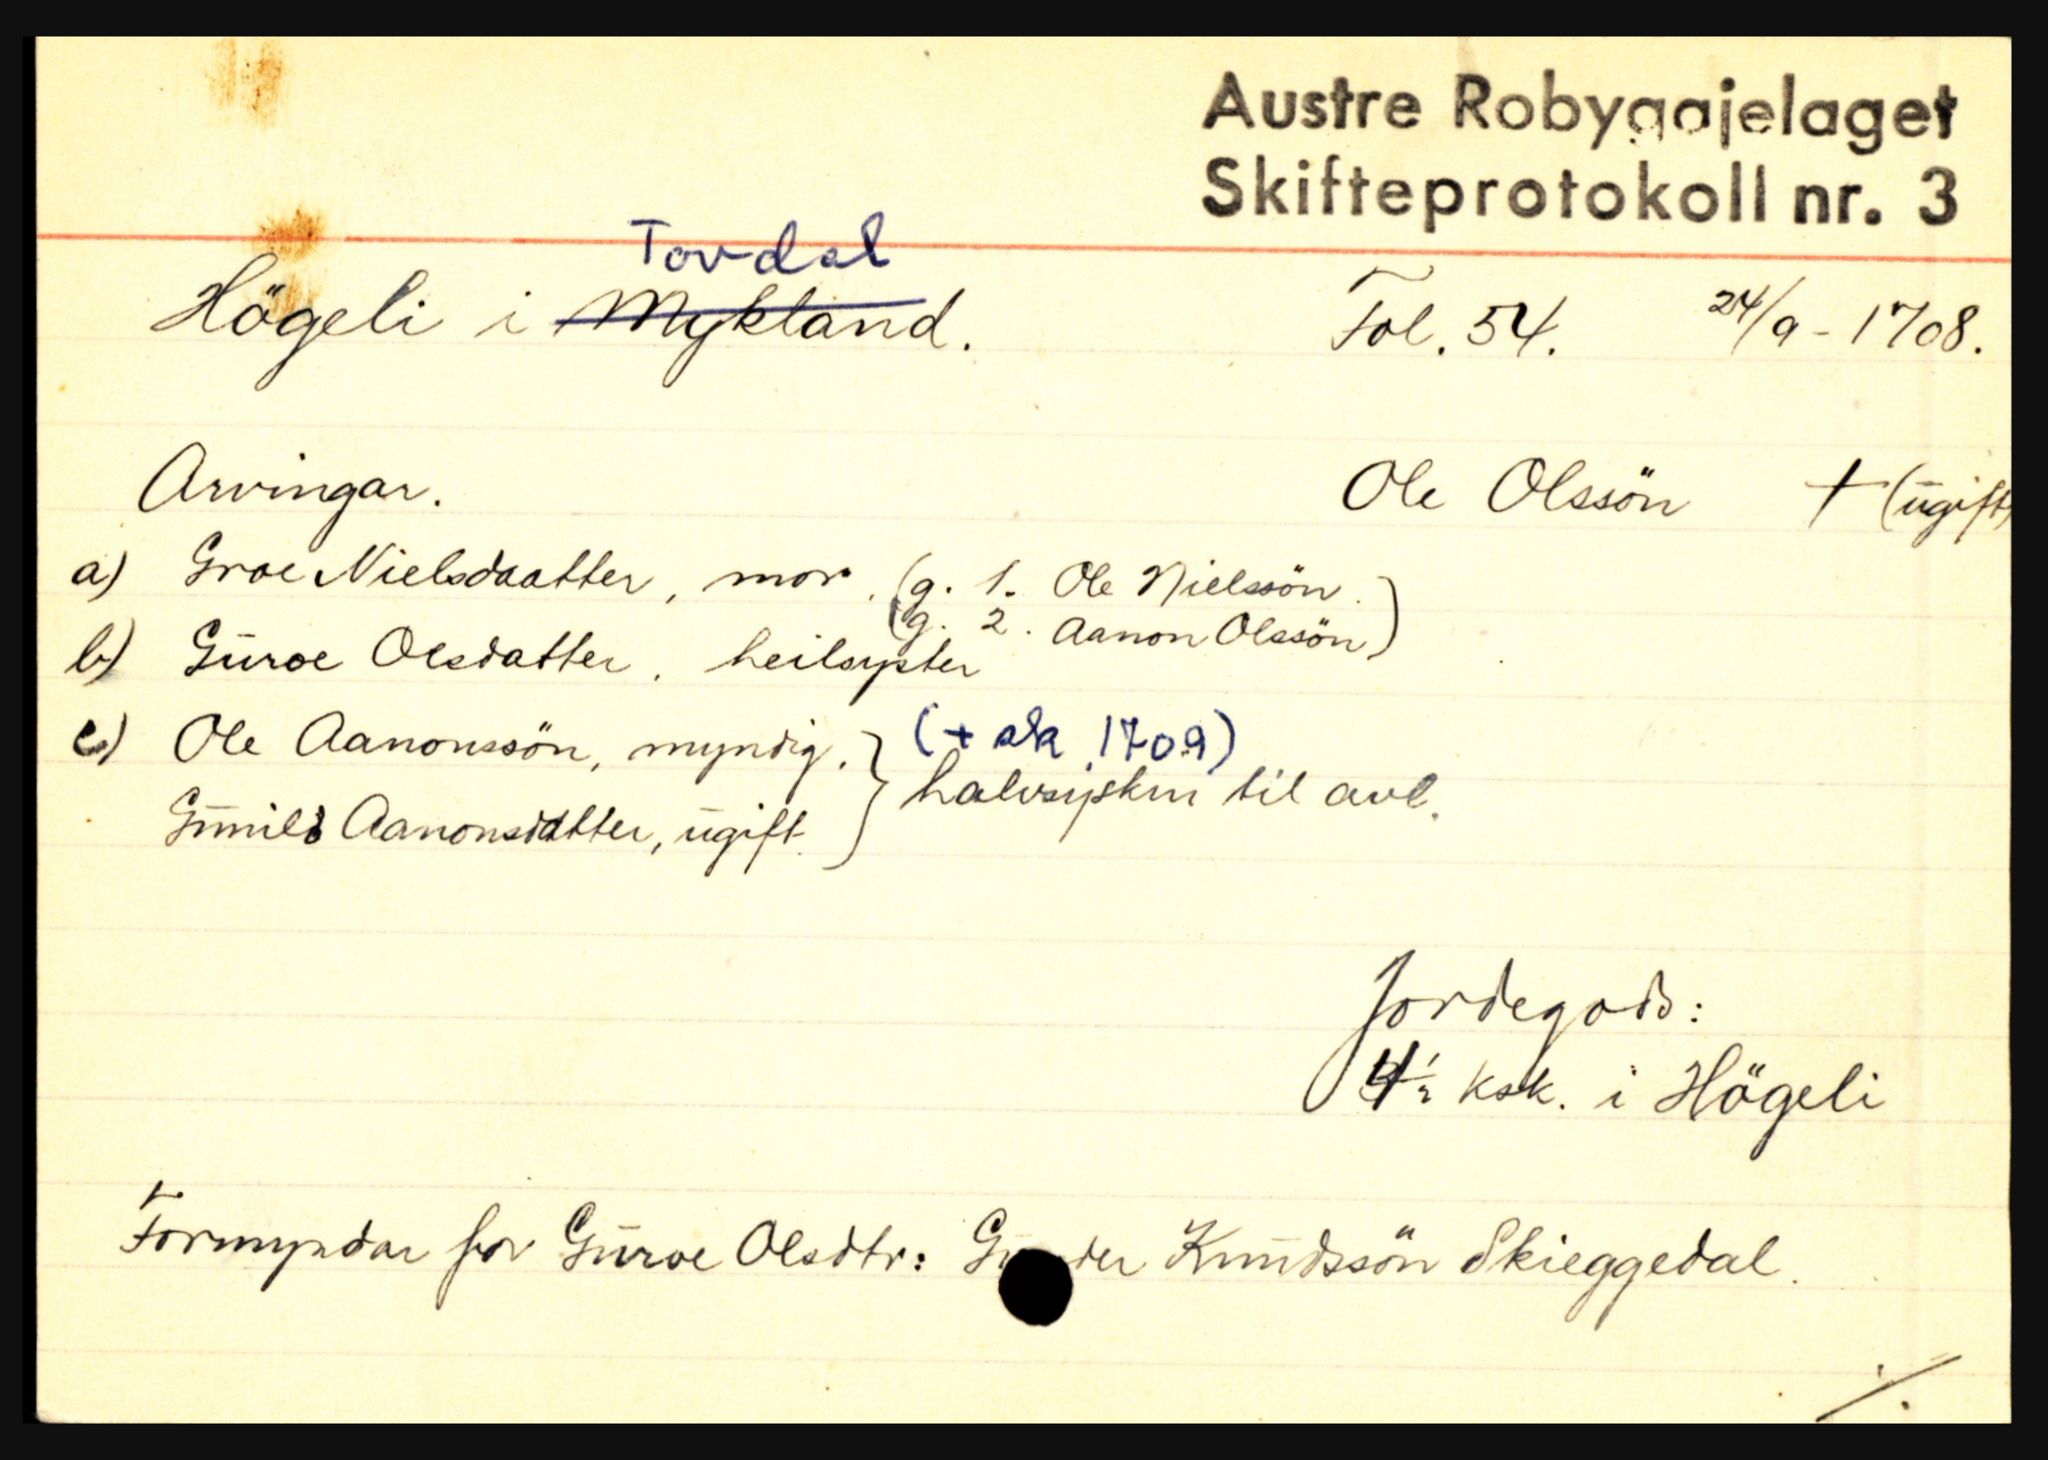 Austre Robyggjelaget
Skifteprotokoll nr. 3
Tovdal
Högeli i Mykland. Fol. 54. 24/9 - 1708.
Arvingar. Ole Olssön + (ugift)
a) Groe Nielsdaatter, mor. (g. 1. Ole Nielssön.)
(g. 2. Aanon Olssön)
b) Guroe Olsdatter. heilsyster
c) Ole Aanonssön, myndig. (+ sk 1709)
halvsysken til avl.
Gunild Aanonsdatter, ugift.
Jordegods:
4½ ksk. i Högeli
Formyndar for Guroe Olsdtr: Gunder Knudssön Skieggedal.